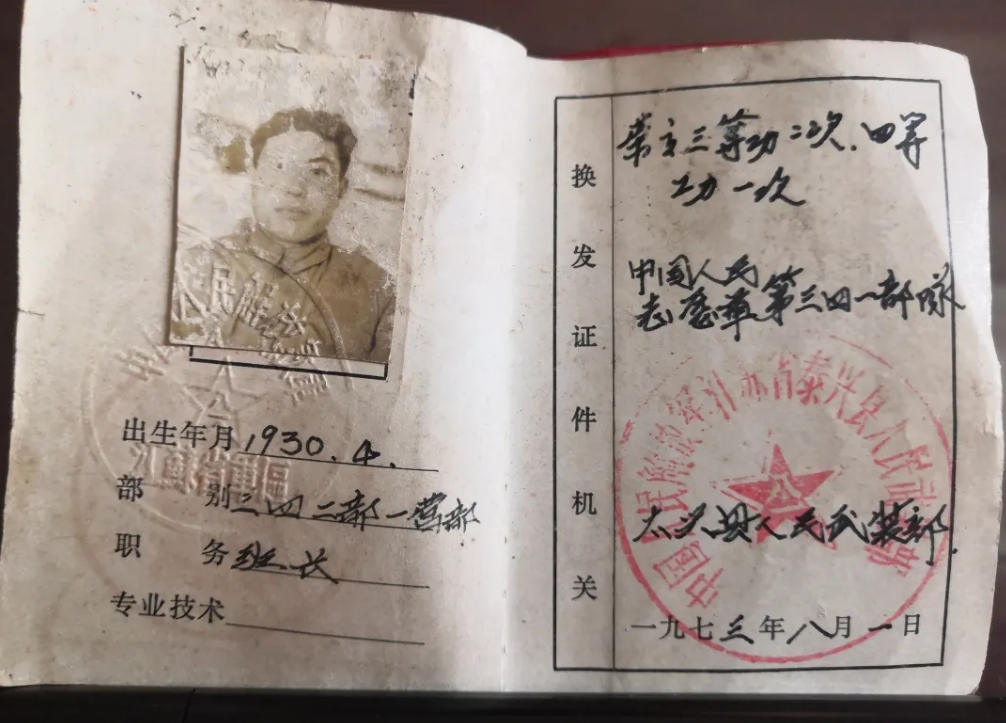 出生年月 1930.4.
部别 三四二部一营部
职务 班长
专业技术
换发证件机关
荣立三等功二次.四等
功一次
中国人民
志愿军第三四一部队
太兴县人民武装部.
一九七三年八月一日
中国人民解放军江苏省泰兴县人民武装部
江苏省军区